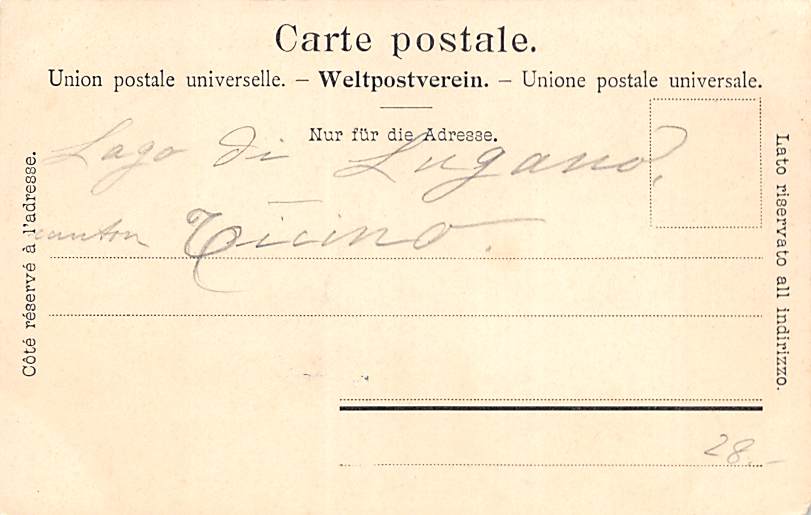 Carte postale.
Union postale universelle. – Weltpostverein. – Unione postale universale.
Nur für die Adresse.
Côté réservé à l'adresse.
Lato riservato all indirizzo.
Lago di Lugano,
canton Ticino.
28.-